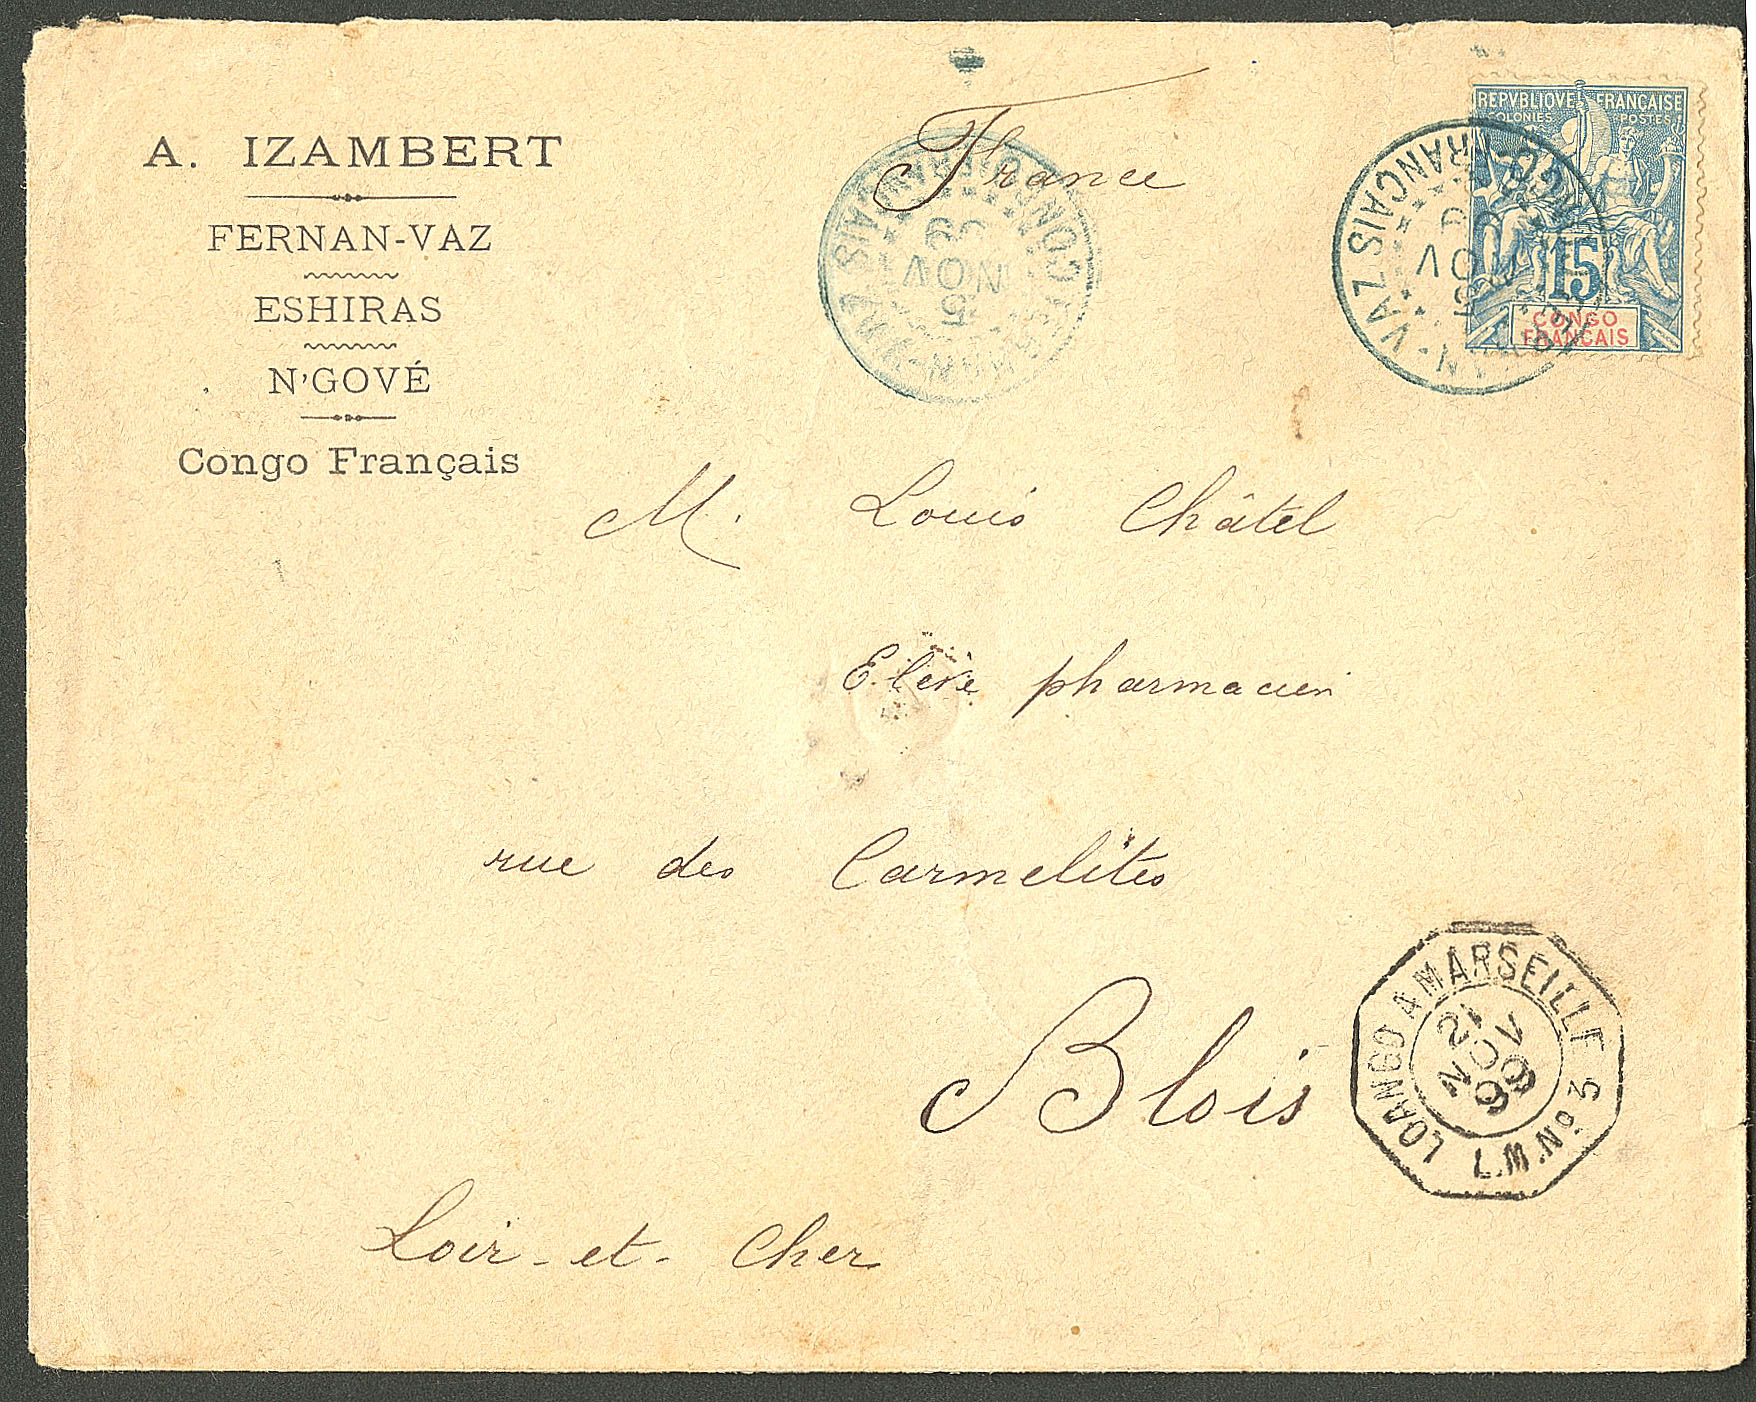 A. IZAMBERT
FERNAN-VAZ
ESHIRAS
N'GOVÉ
Congo Français
France
CONGO FRANÇAIS
5
NOV
99
FERNAN-VAZ
REPVBLIQVE FRANÇAISE
COLONIES POSTES
15
CONGO
FRANÇAIS
CONGO FRANÇAIS
5
NOV
FERNAN-VAZ
M. Louis Châtel
Elève pharmacien
rue des Carmelites
Blois
Loir-et-Cher
LOANGO A MARSEILLE
21
NOV
99
L.W.Nº 3